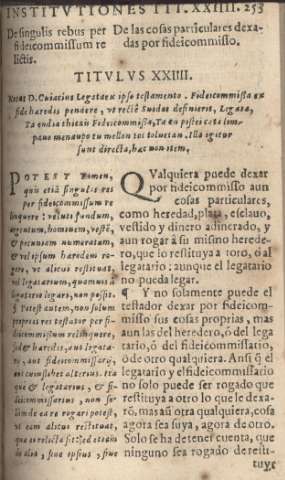 INSTITVTIONES III. XXIIII. 253
De singulis rebus per
fideicommissum re
lictis.
De las cosas particulares dexa-
das por fideicommisso.
TITVLVS XXIIII.
Notat D. Cuiacius Legata ex ipso testamento. Fideicommissa ex
fide haredis pendere, vt recte Suidas definierit, Legata,
sunt directa, hac non item,
POTEST tamen,
quis etiã singulas res
per fideicommissum re
linquere: veluti fundum,
argentum, hominem, vestẽ,
& pecuniam numeratam,
& vel ipsum haredem ro-
gare, vt alicui restituat,
vel legatarium, quamuis à
legatario legari, non possit.
¶ Potest autem, non solum
proprias res testator per fi-
deicommissum relinquere,
sed & haredis, aut legata-
rij, aut fideicommissarij,
aut cuiuslibet alterius. Ita
que & legatarius, & fi-
deicommissarius, non so-
lum de ea re rogari potest,
vt eam alicui restituat,
que ei relicta sit: sed etiam
de alia, siue ipsius, siue
QValquiera puede dexar
por fideicommisso aun
cosas particulares,
como heredad, plata, esclauo,
vestido y dinero adinerado, y
aun rogar à su mismo herede-
ro, que lo restituya a otro, ó al
legatario: aunque el legatario
no pueda legar.
¶ Y no solamente puede el
testador dexar por fideicom-
misso sus cosas proprias, mas
aun las del heredero, ó del lega
tario, ó del fideicommissario,
ó de otro qualquiera. Ansi q̃ el
legatario y el fideicommissario
no solo puede ser rogado que
restituya a otro lo que le dexa-
rõ, mas aũ otra qualquiera, cosa
agora sea suya, agora de otro.
Solo se ha de tener cuenta, que
ninguno sea rogado de resti-
tuyr